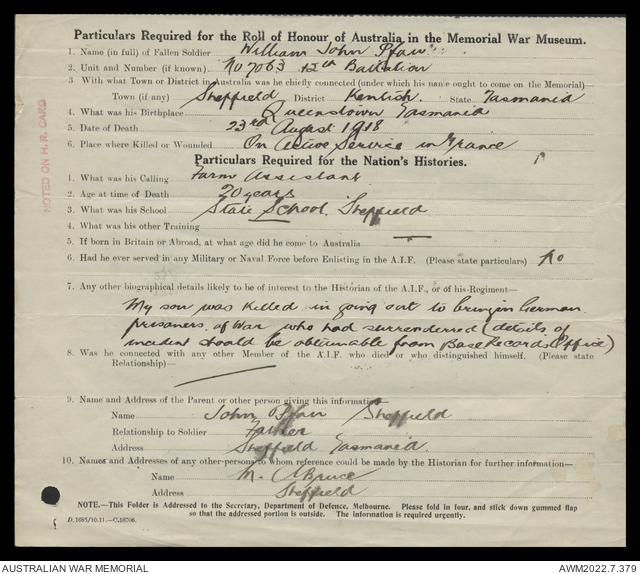 Particulars Required for the Roll of Honour of Australia in the Memorial War Museum.
1. Name (in full) of Fallen Soldier William John Pfau
2. Unit and Number (if known) No 7063 12th Battalion
3 With what Town or District in Australia was he chiefly connected (under which his name ought to come on the Memorial)—
Town (if any) Sheffield District Kentish. State Tasmania
4. What was his Birthplace Queenstown Tasmania
5. Date of Death 23rd August 1918
6. Place where Killed or Wounded On Active Service in France
Particulars Required for the Nation's Histories.
1. What was his Calling Farm Assistant
2. Age at time of Death 20 years
3. What was his School State School, Sheffield
4. What was his other Training
5. If born in Britain or Abroad, at what age did he come to Australia
6. Had he ever served in any Military or Naval Force before Enlisting in the A.I.F. (Please state particulars) No
7. Any other biographical details likely to be of interest to the Historian of the A.I.F., or of his Regiment—
My son was killed in going out to bring in German
prisoners of War who had surrendered (details of
incident should be obtainable from Base Records Office)
8. Was he connected with any other Member of the A.I.F. who died or who distinguished himself. (Please state
Relationship)—
9. Name and Address of the Parent or other person giving this information—
Name John Pfau Sheffield
Relationship to Soldier Father
Address Sheffield Tasmania.
10. Names and Addresses of any other persons to whom reference could be made by the Historian for further information—
Name M. Bruce
Address Sheffield
NOTE.—This Folder is Addressed to the Secretary, Department of Defence, Melbourne. Please fold in four, and stick down gummed flap
so that the addressed portion is outside. The information is required urgently.
D.1685/10.11.—C.16706.
NOTED ON H.R. CARD
AUSTRALIAN WAR MEMORIAL
AWM2022.7.379